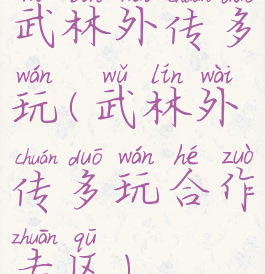 武林外传多
wán wǔ lín wài
玩(武林外
chuán duō wán hé zuò
传多玩合作
zhuān qū
专区)